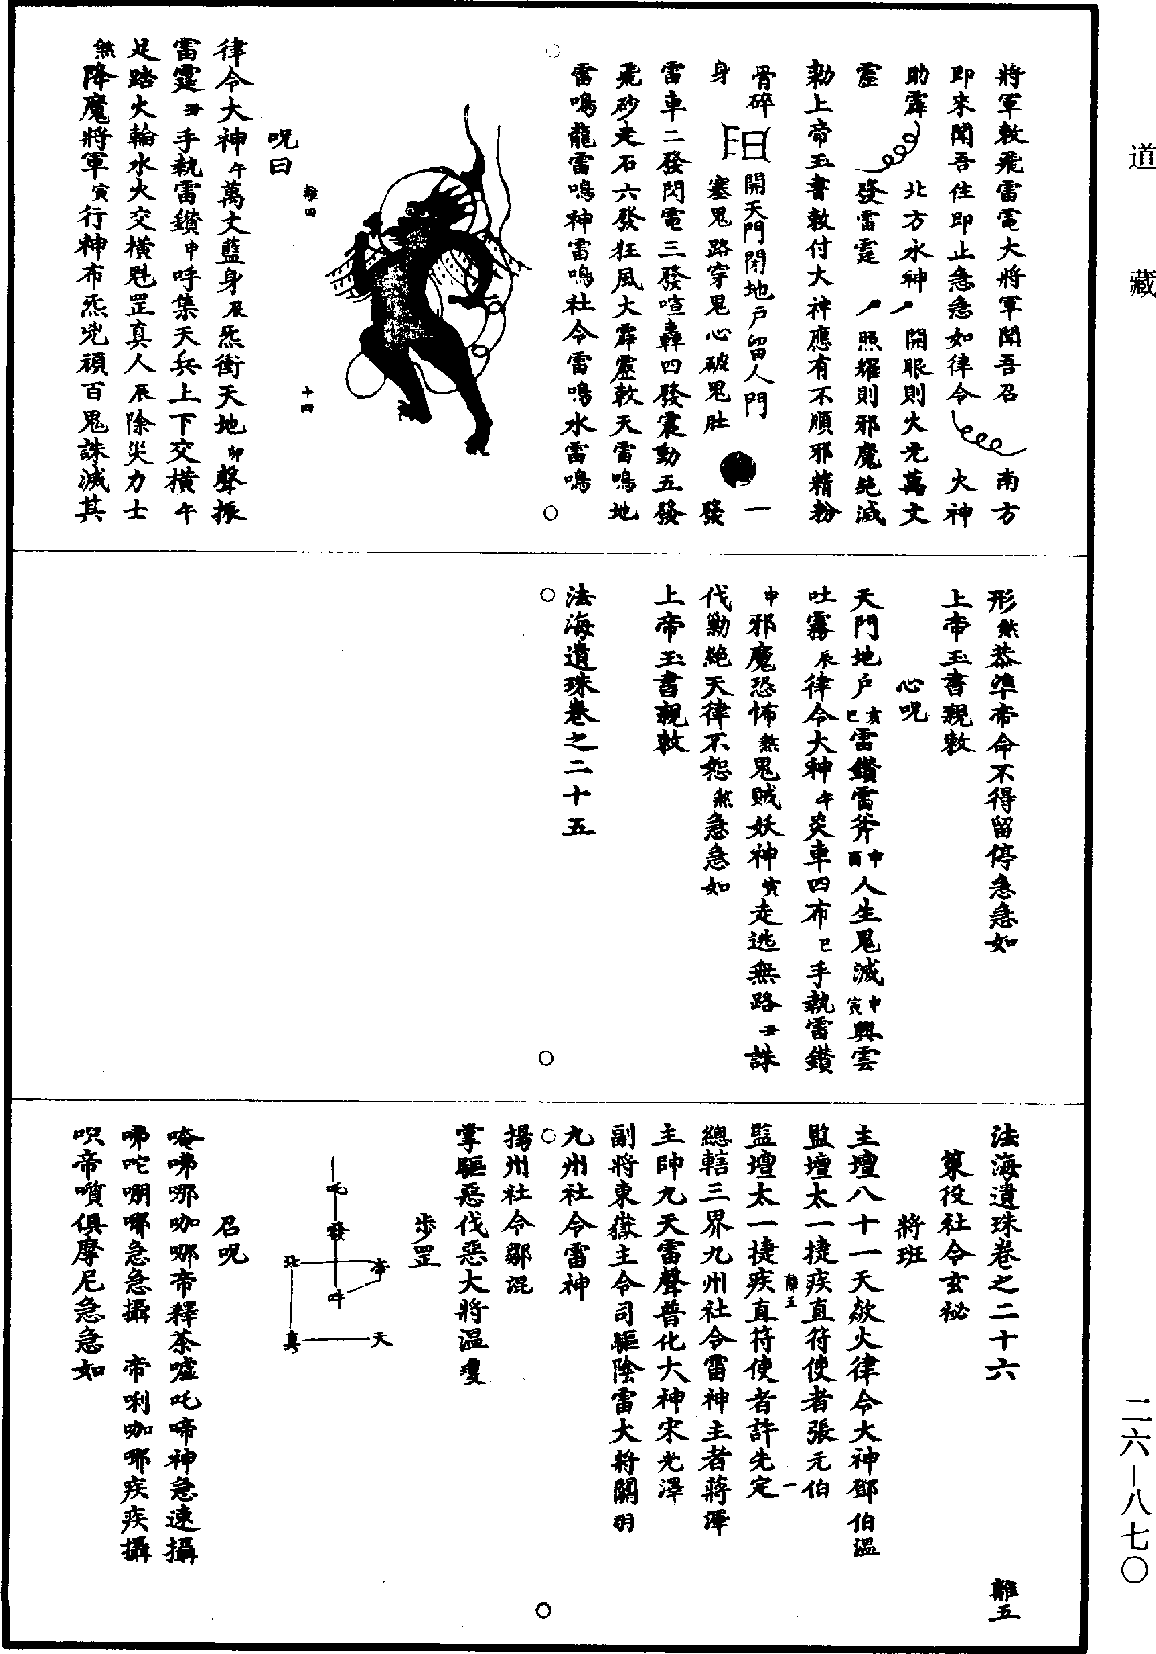 道藏
二六—八七〇
將軍敕飛雷電大將軍聞吾召　南方
即來聞吾住即止急急如律令　火神
助霹　北方水神　開眼則火光萬丈
靂　發雷霆　照耀則邪魔絶滅
勑上帝玉書敕付大神應有不順邪精粉
骨碎　開天門閉地戶留人門　一
身　塞鬼路穿鬼心破鬼肚　發
雷車二發閃電三發喧轟四發震動五發
飛砂走石六發狂風大霹靂敕天雷鳴地
雷鳴龍雷鳴神雷鳴社令雷鳴水雷鳴
十四
呪曰
律令大神午萬丈藍身辰炁衝天地卯聲振
雷霆丑手執雷鑽申呼集天兵上下交橫午
足踏火輪水火交橫魁罡真人辰除災力士
煞降魔將軍寅行神布炁兇頑百鬼誅滅其
形煞恭準帝命不得留停急急如
上帝玉書親敕
心呪
天門地戶亥巳雷鑽雷斧申酉人生鬼滅申寅興雲
吐霧辰律令大神午炎車四布巳手執雷鑽
申邪魔恐怖煞鬼賊妖神寅走逃無路丑誅
伐勦絶天律不恕煞急急如
上帝玉書親敕
法海遺珠卷之二十五
法海遺珠卷之二十六　離五
策役社令玄祕
將班
主壇八十一天欻火律令大神鄧伯溫
監壇太一捷疾直符使者張元伯
離五　一
監壇太一捷疾直符使者許先定
總轄三界九州社令雷神主者蔣澤
主帥九天雷聲普化大神宋光澤
副將東嶽主令司驅陰雷大將關羽
九州社令雷神
揚州社令鄒混
掌驅惡伐惡大將溫瓊
步罡
吒
發
帝
吽
天
真
召呪
唵咈哪咖哪帝釋茶嚧吒啼神急速攝
咈咜唎哪急急攝　帝唎咖哪疾疾攝
呮帝嚩俱摩尼急急如